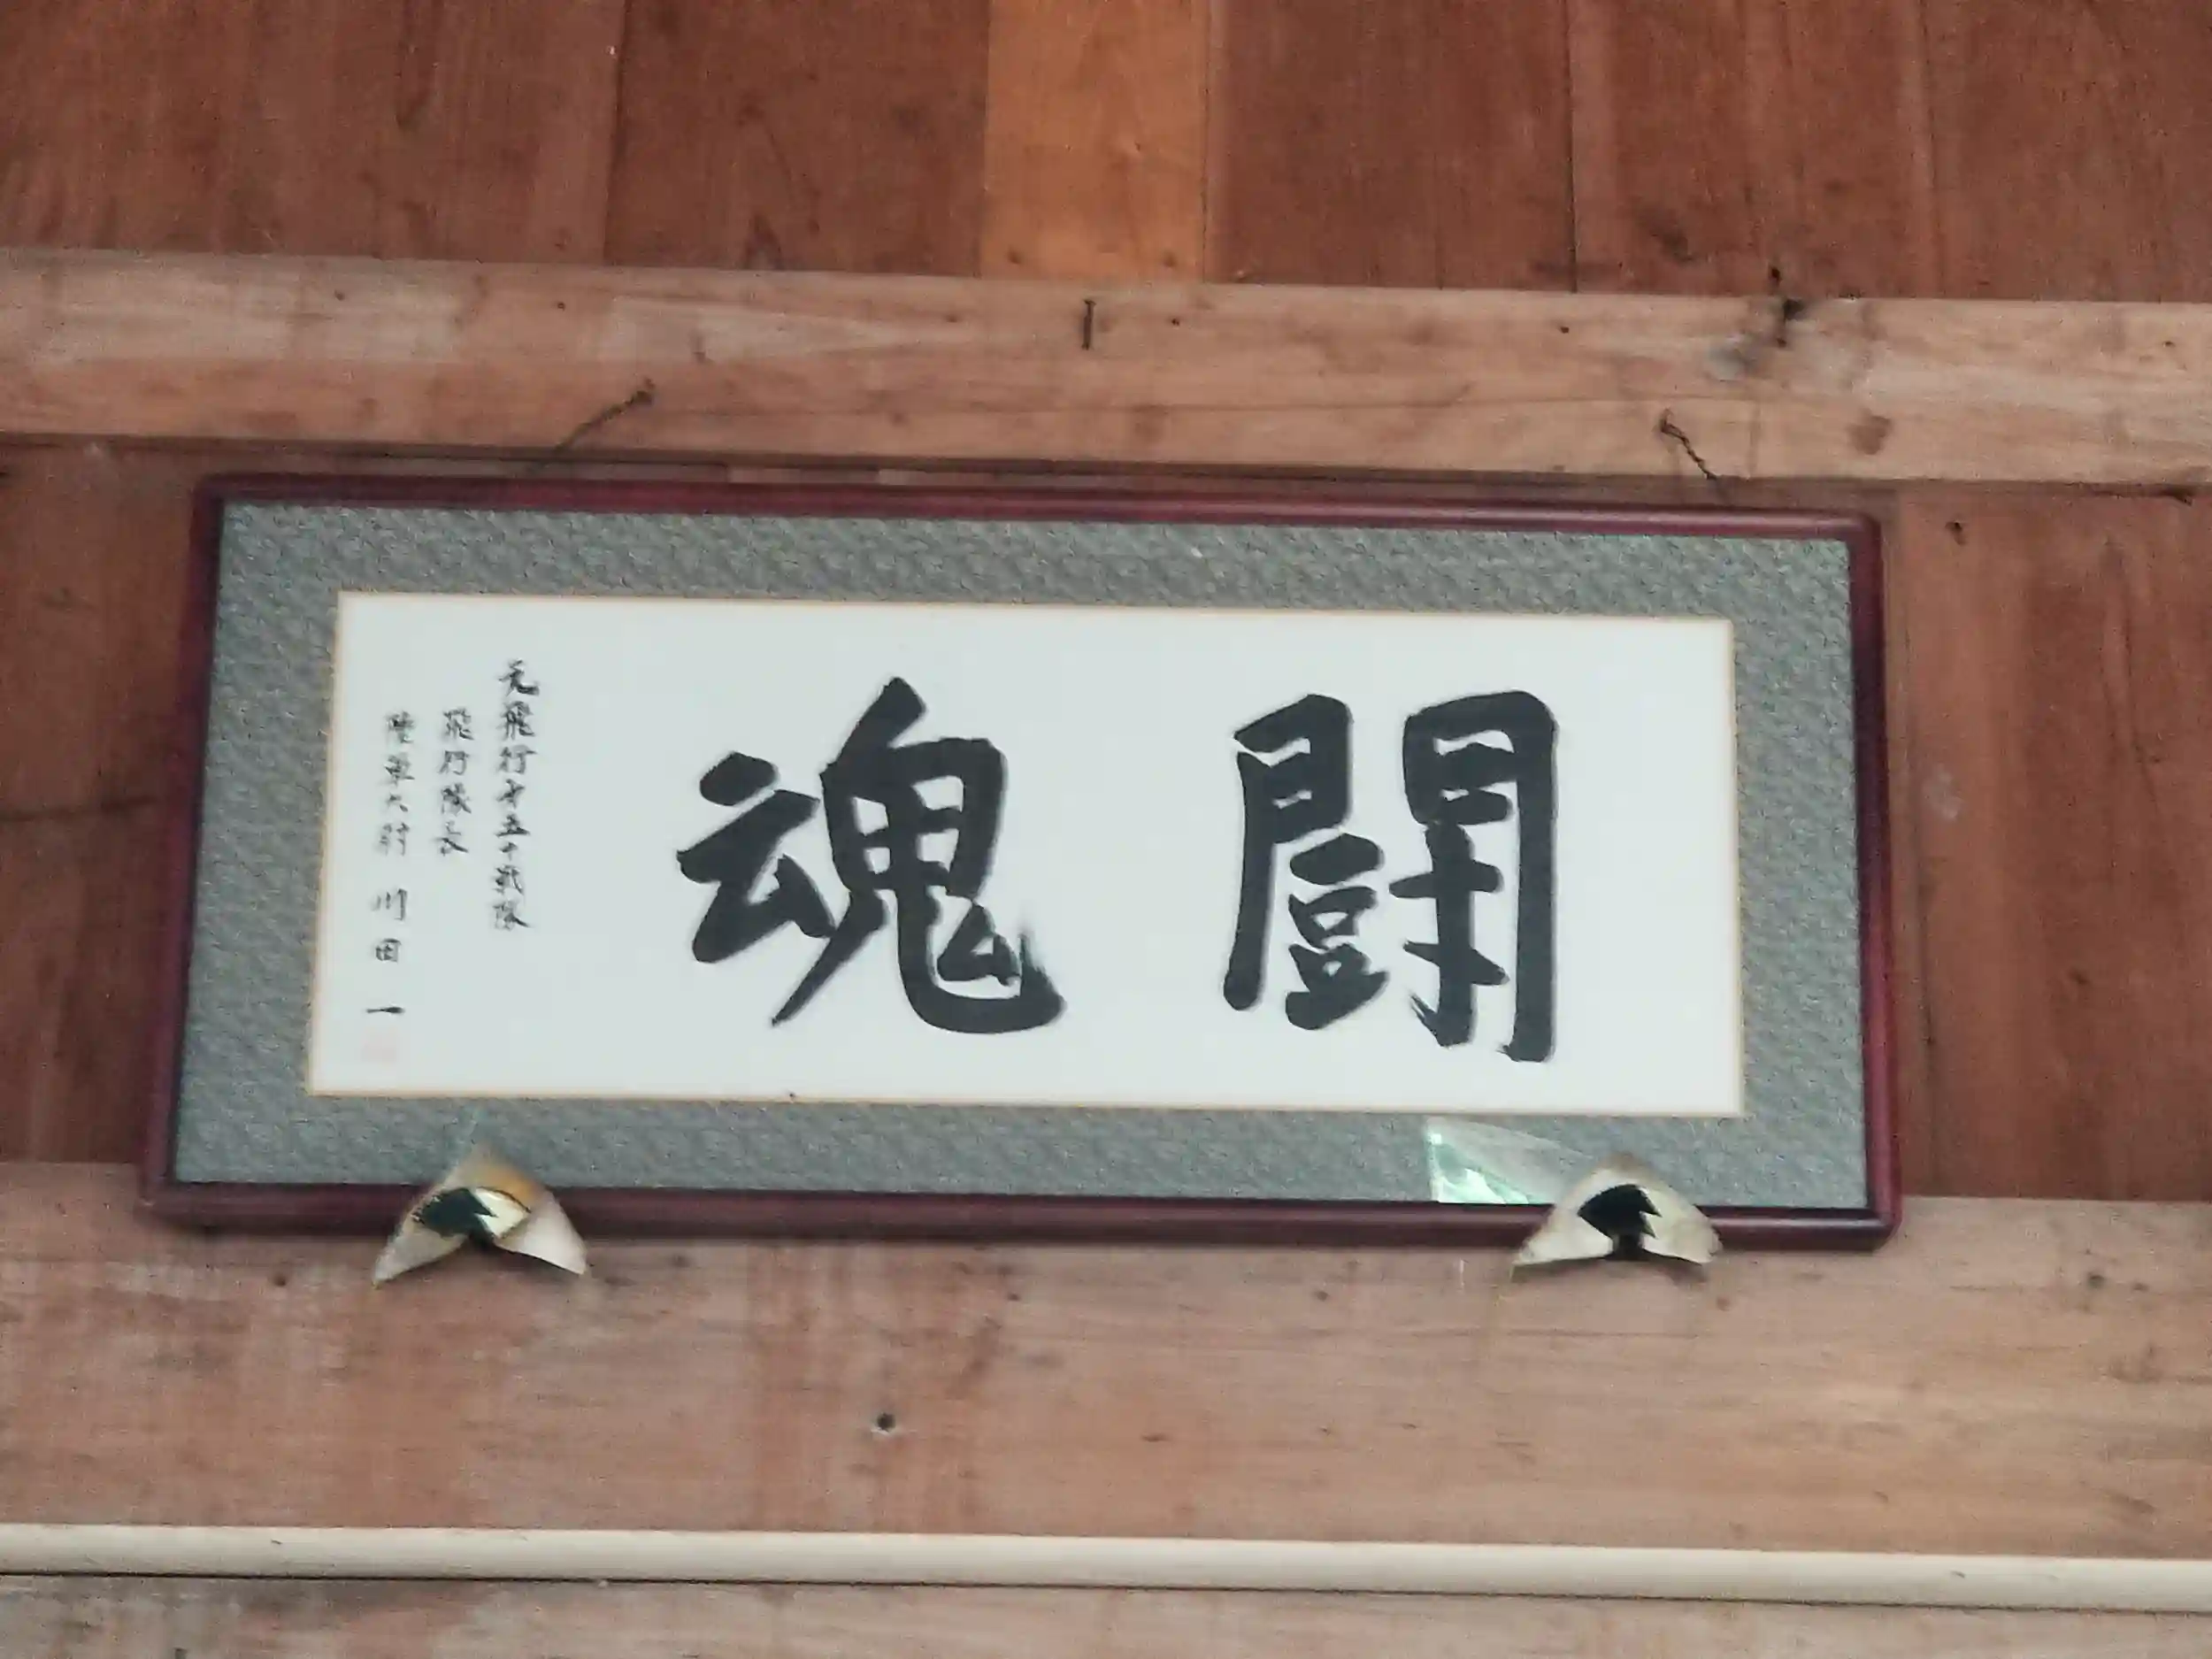 闘魂
元飛行才五十戦隊
飛行隊長
陸軍大尉 川田一